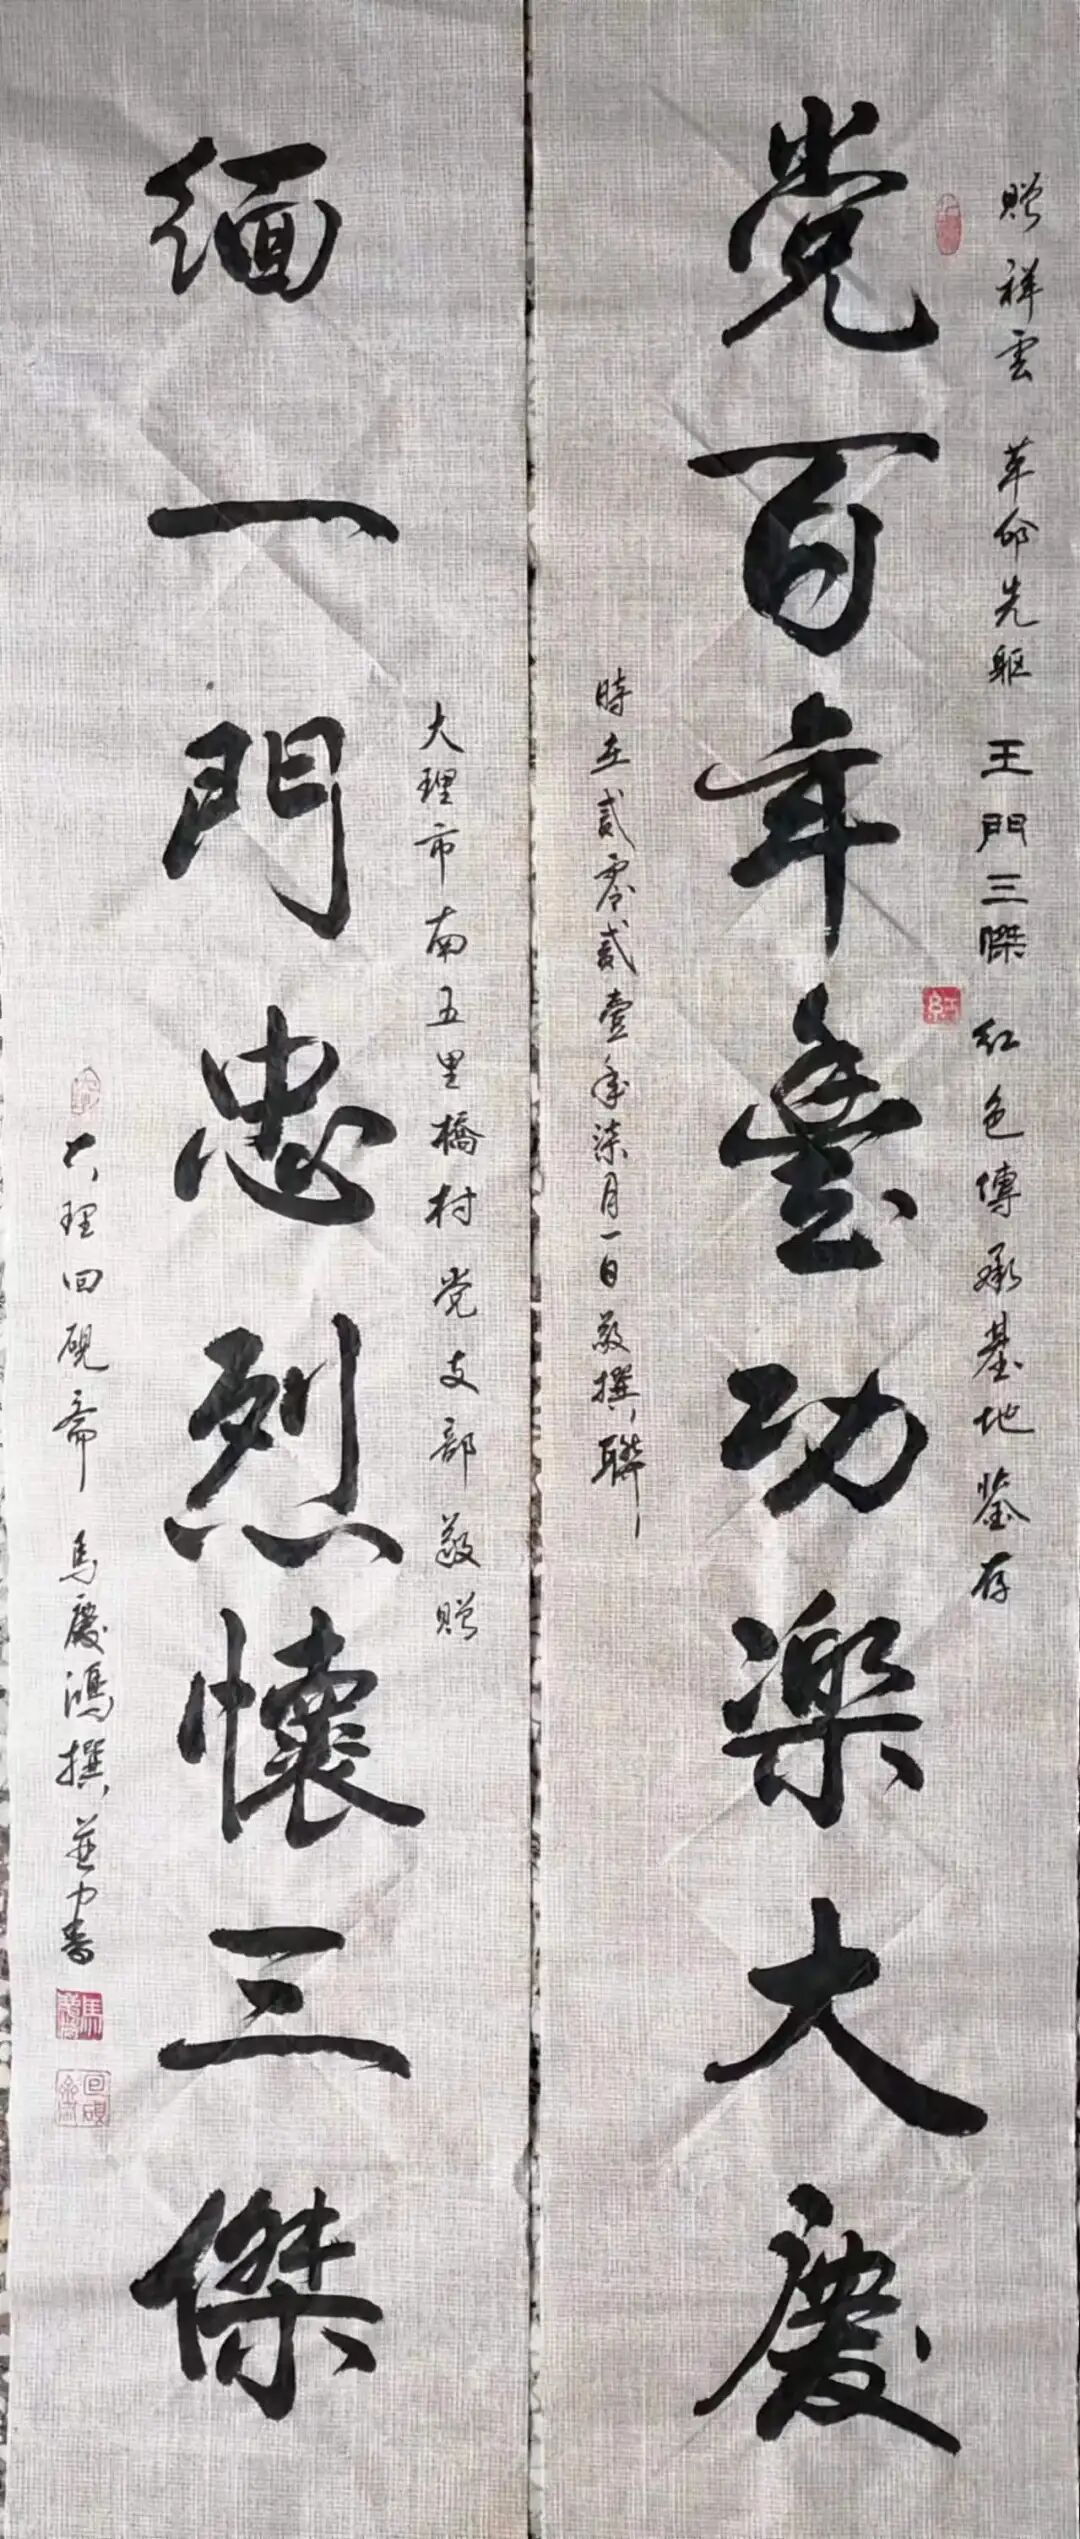 赠祥雲 革命先躯 王門三傑 红色傳承基地鉴存
党百年豐功楽大慶
時在贰零贰壹年柒月一日敬撰聯
大理市南五里橋村党支部敬赠
緬一門忠烈懷三傑
大理回硯斋 馬慶鴻撰並書